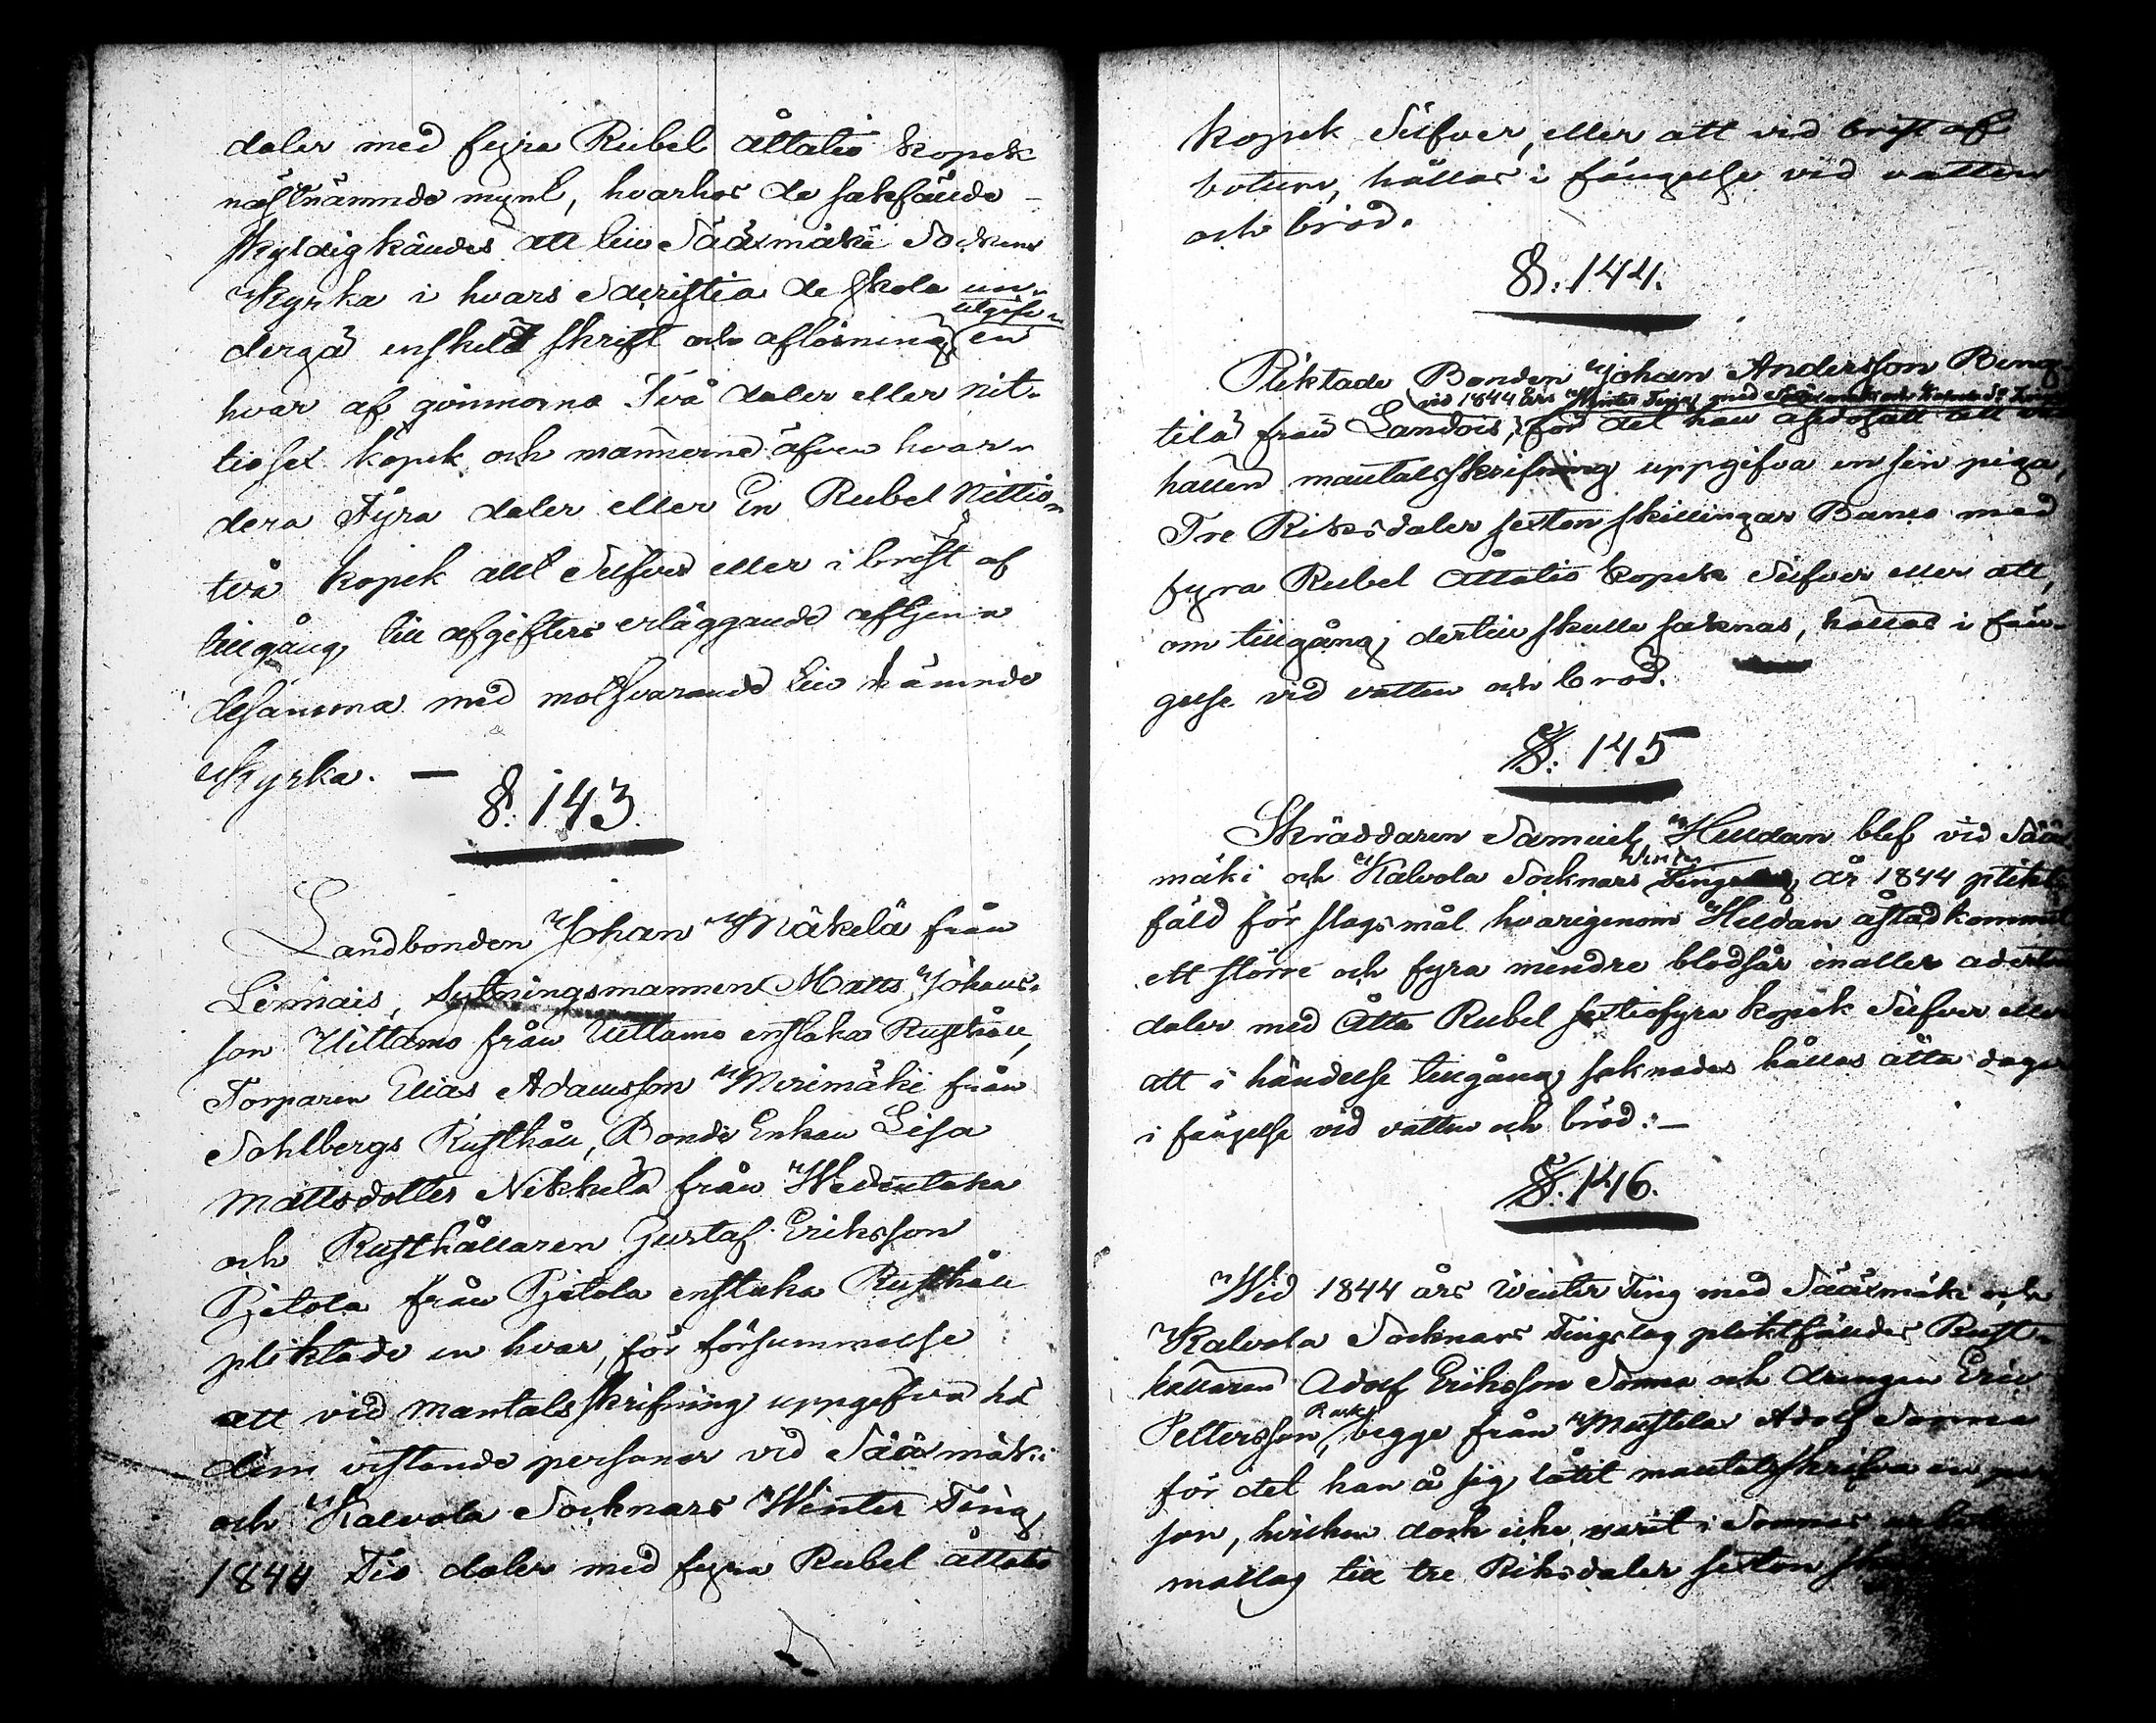 daler med fyra Rubel åttatio kopek
nästnämnde mynt, hvarhos de sakfälde
skyldig kändes att till Sääxmäki Sockens
Kyrka i hvars Sacristia de skola un-
dergå enskild skrift och aflösning, utgifva en
hvar af qvinnorna Två daler eller nit-
tiosex kopek och männerne äfven hvar-
dera Fyra daler eller En Rubel Nittio-
två kopek allt Silfver eller i brist af
tillgång till afgifters erläggande aftjena
desamma med motsvarande till nämnde
Kyrka. —
§. 143.
Landbonden Johan Mäkelä från
Limais, Sytningsmannen Matts Johans-
son Uittamo från Uittamo enstaka Rusthåll,
Torparen Elias Adamsson Merimäki från
Sohlbergs Rusthåll, Bonde Enkan Lisa
Mattsdotter Nikkilä från Wedentaka
och Rusthållaren Gustaf Eriksson
Pjetola från Pjetola enstaka Rusthåll
pliktade en hvar, för försummelse
att vid Mantalsskrifning uppgifva hos
dem vistande personer vid Sääxmäki
och Kalvola Socknars Winter Ting
1844 Tio daler med fyra Rubel åttatio
kopek Silfver, eller att vid brist af
boturn, hållas i fängelse vid vatten
och bröd.
§. 144.
Pliktade Bonden Johan Andersson
vid 1844 års Winter Ting med Sääxmäki och Kalvola
tilä från Landois, för det han att vid
hållen mantalsskrifning uppgifva en sin piga,
Tre Riksdaler sexton skillingar Banco med
fyra Rubel åttatio kopek Silfver eller att,
om tillgång dertill skulle saknas, hållas i fän-
gelse vid vatten och bröd.
§. 145
Skräddaren Samuel Helldan blef vid Sääx
mäki och Kalvola Socknars Winter Ting år 1844 plikt
fäld för slagsmål hvarigenom Helldan åstadkommit
ett större och fyra mindre blodsår inalles aderton
daler med Åtta Rubel sextiofyra kopek Silfver eller
att i händelse tillgång saknades hållas åtta dagar
i fängelse vid vatten och bröd: —
§. 146.
Wid 1844 års Winter Ting med Sääxmäki och
Kalvola Socknars Tingslag pliktfäldes Rust-
hållaren Adolf Eriksson Sonna och drängen Eric
Pettersson, begge från Mustila Adolf Sonna
för det han å sig låtit mantalsskrifva en per
son, hvilken dock icke varit i Sonnas
matlag till tre Riksdaler sexton